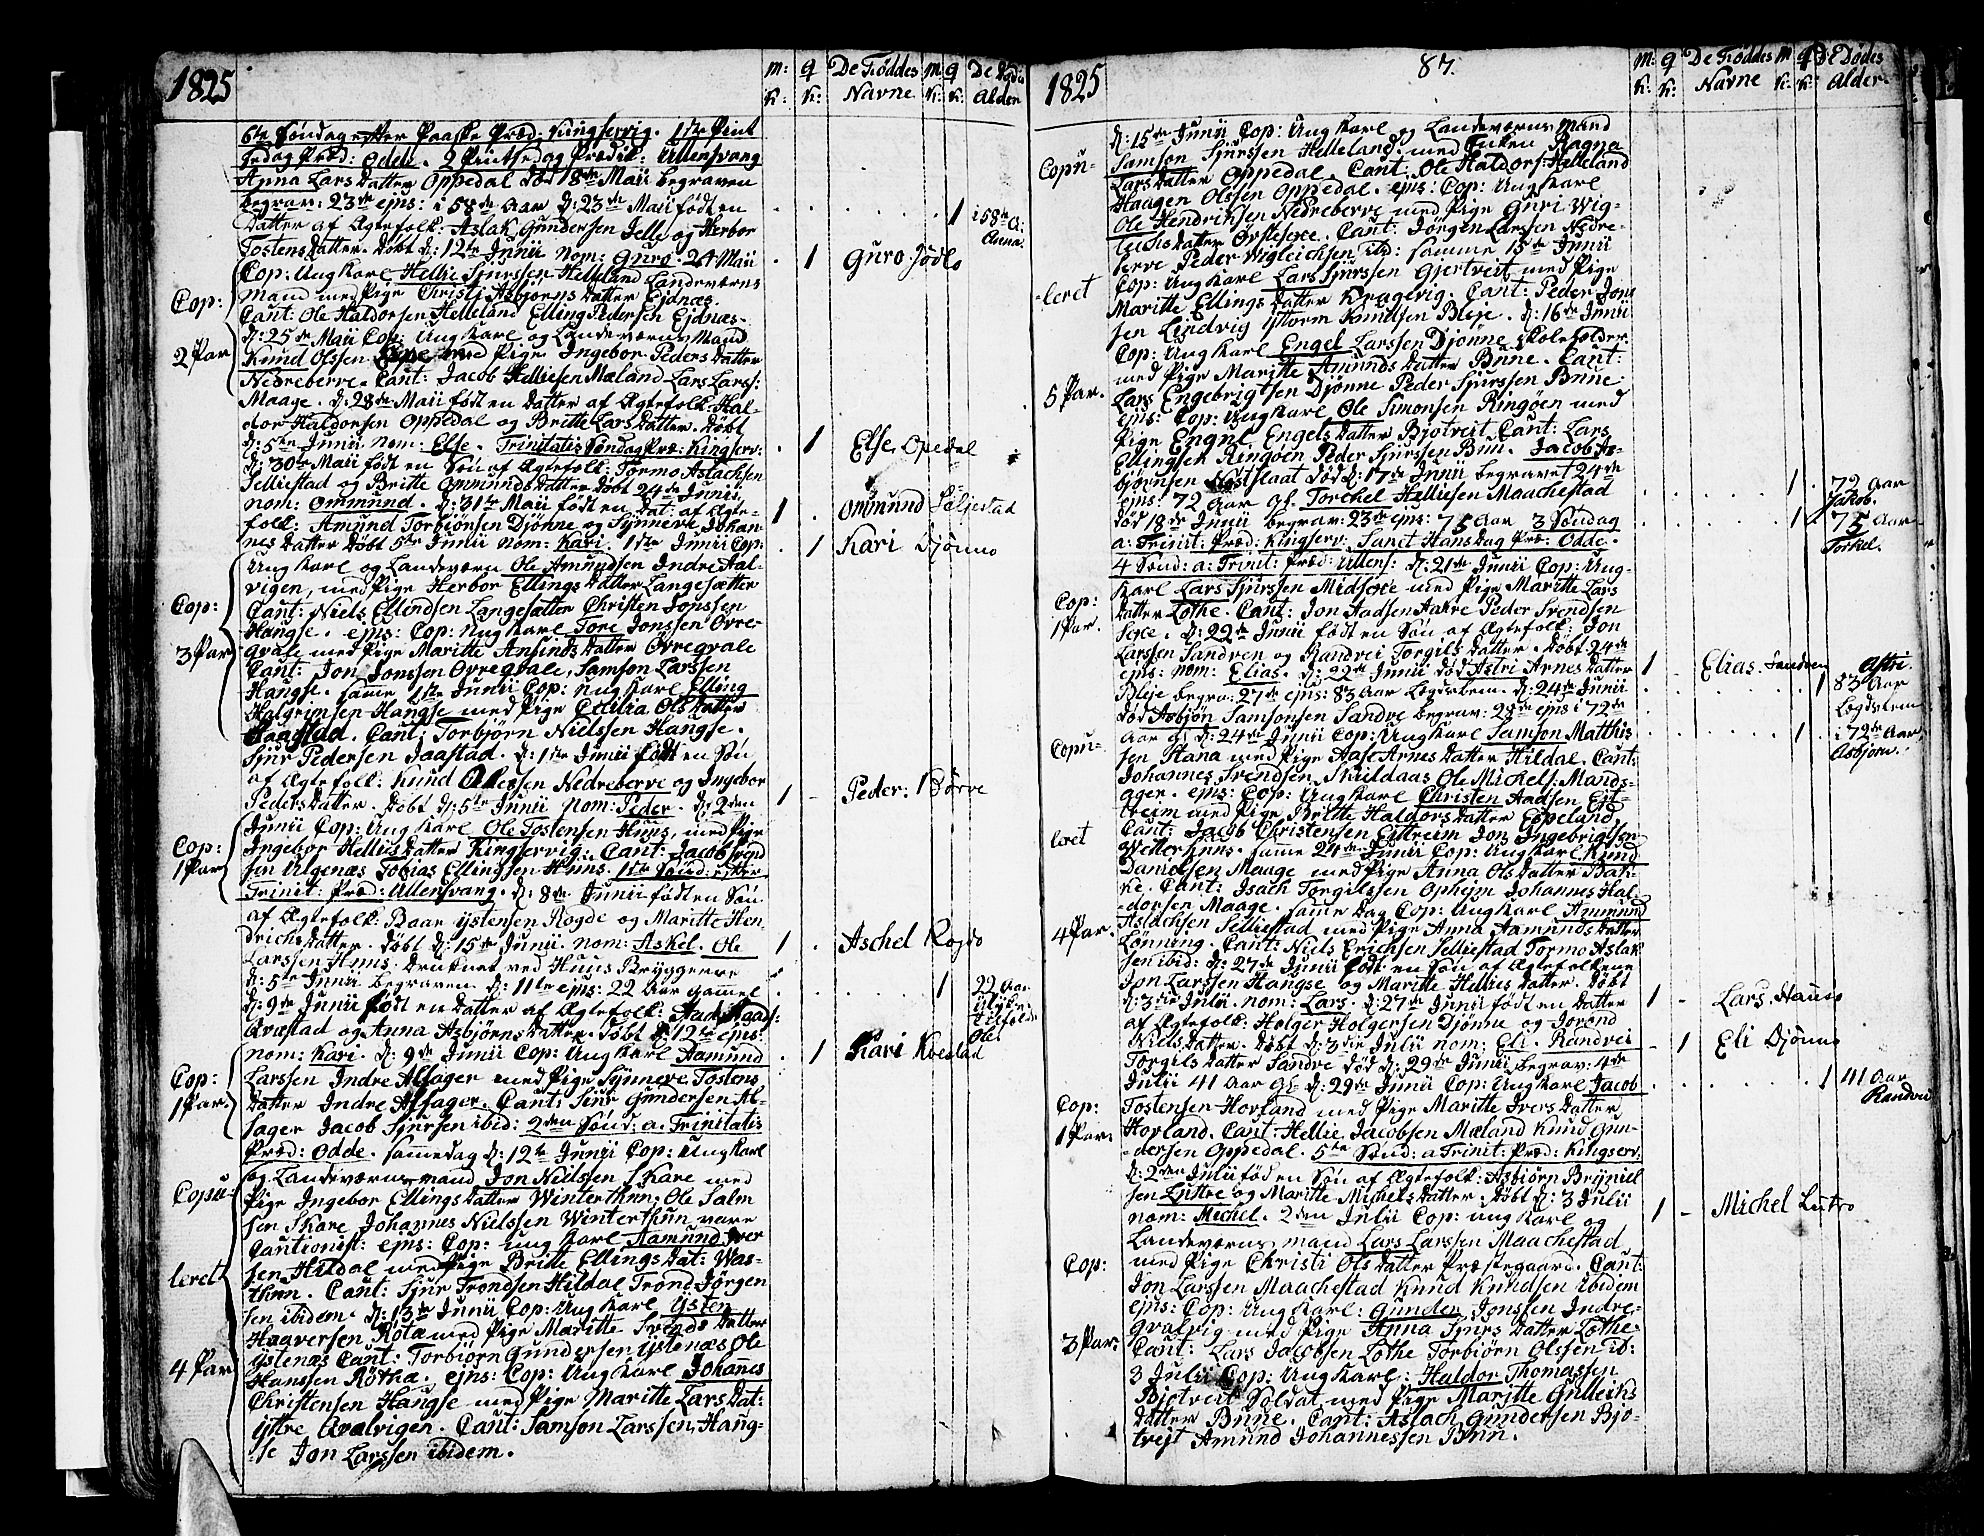 1825
m: q De Føddes m: q De Døde
k: k: Navne k: k: Alder
6te Søndag efter Paaske Præd: Kingservig. 1ste Pint
sedag Præd: Odde. 2 Pintsedag Prædik: Ullensvang
Anna Lars Datter Oppedal død 18de Maii begraven
begrav: 23de ejus: i 58de Aar d: 23de Maii født en
1 i 58de A:
Datter af Ægtefolk: Aslak Gundersen Jelle og Herbor
Anna.
Tostens Datter. Døbt d: 12te Junii nom: Guro. 24 Maii
1 Guro Jødlo
Cop: Ung Karl Hellie Sjurssen Helleland Landeværns
Mand med Pige Christi Asbjørns Datter Ejdnæs.
Cop:
Cant: Ole Haldorsen Helleland Elling Pedersen Ejdnæs.
d: 25de Maii Cop: Ung Karl og Landeværns Mand
2 Par
Knud Olssen Espe med Pige Ingebor Peders Datter
Nedreberve. Cant: Jacob Helliesen Mæland Lars Lars:
Maage. d: 28de Maii født en Datter af Ægtefolk: Hal-
dor Haldorsen Oppedal og Britte Lars Datter. Døbt
d: 5te Junii nom: Else. Trinitatis Søndag Præ: Kingserv:
1 Else Opedal
d: 30te Maii født en Søn af Ægtefolk: Tormo Aslachsen
Selliestad og Britte Ommunds Datter Døbt 24de Junii,
nom: Ommund. d: 31te Maii født en Dat: af Ægte-
1 Ommund Seljestad
folk: Amund Torbiønsen Djønne og Synneve Johan-
nes Datter Døbt 5te Junii nom: Kari. 1ste Junii Cop:
1 Kari Djønno
Ung Karl og Landeværn Ole Amundsen Indre Aal-
vigen, med Pige Herbor Ellings Datter Langesætter
Cop:
Cant: Niels Ellendsen Langesætter Christen Jonssen
Hangse. ejus: Cop: Ung Karl Tore Jonssen Øvre-
3 Par
qvale med Pige Maritte Ansinds Datter Øvreqvale
Cant: Jon Jonssen Øvreqvale, Samson Larssen
Hangse. samme 1ste Junii Cop: Ung Karl Elling
Halgrimsen Hangse med Pige Cecilia Ols Datter
Jaastad. Cant: Torbjørn Nielssen Hangse.
Sjur Pedersen Jaastad. d: 1ste Junii født en Søn
af Ægtefolk: Knud Olessen Nedreberve og Ingebor
Peders Datter. Døbt d: 5te Junii nom: Peder. d: 2den
1 Peder: Børve
Junii Cop: Ung Karl Ole Tostensen Huus, med Pige
Cop:
Ingebor Hellies Datter Kingservig. Cant: Jacob Svend
1 Par
sen Utgenæs Tobias Ellingsen Huus. 1ste Sønd: efter
Trinit: Præd: Ullensvang. d: 8de Junii født en Søn
af Ægtefolk: Baar Ystensen Rogde og Maritte Hen
drichs Datter. Døbt d: 15de Junii. nom: Askel. Ole
1 Aschel Rogdo
Larssen Huus: Druknet ved Huus Bryggerne
d: 5te Junii begraven d: 11te ejus: 22 Aar gammel
1 22 Aar
d: 9de Junii født en Datter af Ægtefolk: Aad Aads:
Qvestad og Anna Asbjørns Datter. Døbt d: 12te ejus:
Ole
nom: Kari. d: 9de Junii Cop: Ung Karl Aamund
1 Kari Kvestad
Cop:
Larssen Indre Alsager med Pige Synneve Tostens
1 Par.
Datter Indre Alsager. Cant: Sjur Gundersen Al-
sager Jacob Sjursen ibid: 2den Sønd: a: Trinitatis
Præd: Odde. samme dag d: 12te Junii Cop: Ung Karl
Copu-
og Landeværns mand Jon Nielssen Skare med
Pige Ingebor Ellings Datter Winterthun, Ole Salm
sen Skare Johannes Nielssen Winterthun vare
Cautionist: ejus: Cop: ung Karl Aamund Iver
leret
sen Hildal med Pige Britte Ellings Dat: Was-
thun. Cant: Sjur Trondsen Hildal Trond Jørgen
sen ibidem. d: 13de Junii Cop: Ung Karl Ysten
Haaversen Rota med Pige Maritte Svends Datter
Ystenæs Cant: Torbiørn Gundersen Ystenæs Ole
4 Par
Hanssen Røthæ. ejus: Cop: Ung Karl Johanes
Christensen Hangse med Pige Maritte Lars Dat:
Ystre Qvalvigen. Cant: Samson Larssen, Hang-
se Jon Larssen ibidem.
1825
87.
m: q De Føddes m q De Dødes
k: k: Navne k: k: Alder
d: 15de Junii Cop: Ung Karl og Landeværns Mand
Copu-
Samson Sjurssen Helleland med Enken Ragna
Lars Datter Oppedal. Cant: Ole Haldors: Helleland
Haagen Olssen Oppedal. ejus: Cop: Ung Karl
Ole Hendriksen Nedreberve med Pige Guri Wig-
leichs Datter Ørstesexe. Cant: Jørgen Larssen Nedre-
berve Peder Wigleichsen ibid: samme 15de Junii
leret
Cop: Ung Karl Lars Sjurssen Gjertveit med Pige
Maritte Ellings Datter Kragevig. Cant: Peder Jons
sen Lindvig Ystorm Knudsen Bleje. d: 16de Junii
Cop: Ung Karl Engel Larssen Djønne, Skoleholder
med Pige Maritte Amunds Datter Bnne. Cant:
5 Par.
Lars Engebrigtsen Djønne Peder Sjurssen Bnne
ejus: Cop: Ung Karl Ole Simonsen Ringøen med
Pige Engni Engels Datter Bjotveit Cant: Lars
Ellingsen Ringøen Peder Sjurssen Bnn. Jacob As-
bjørnsen Kostslaat død d: 17de Junii begravet 24de
ejus: 72 Aar gl. Torckel Helliesen Maachestad
1 72 Aar
Jakob.
død 18de Junii begrav: 23de ejus: 75 Aar 3 Søndag
1 75 Aar
a: Trinit: Præd: Kingserv: Sanct Hans Dag Præ: Odde.
Torkel.
4 Sønd: a: Trinit: Præd: Ullens: d: 21de Junii Cop: Ung-
Karl Lars Sjurssen Midsexe med Pige Maritte Lars
Cop:
Datter Lothe. Cant: Jon Aadsen Aakre Peder Svendsen
1 Par.
Sexe. d: 22de Junii født en Søn af Ægtefolk: Jon
Larssen Sandven og Randvei Torgils Datter. Døbt 24de
ejus: nom: Elias. d: 22de Junii død Astri Arnes Datter
1 Elias. Sandven
Astri.
Bleje begra: 27de ejus: 83 Aar Lægdslem. d: 24de Junii
1 83 Aar
Lægdslem
død Asbjøn Samsonsen Sandre begrav: 28de ejus i 72de
Aar gl. d: 24de Junii Cop: Ung Karl Samson Matthis
1 i 72de Aar
Copu-
sen Hana med Pige Aase Arnes Datter Hildal. Cant:
Asbjørn.
Johannes Svendsen, Skuldaas Ole Mickels: Mands-
ager. ejus: Cop: Ung Karl Christen Aadsen Ejt-
treim med Pige Britte Haldors Datter Espeland,
leret
Cant: Jacob Christensen Eittreim Jon Ingebrigtsen
Wetterhuus. samme 24de Junii Cop: Ung Karl Knud
Danielsen Maage med Pige Anna Ols Datter Bak-
ke. Cant: Isach Torgilssen Ophejm Johannes Hal-
dorsen Maage. samme Dag Cop: Ung Karl Ammund
4 Par.
Aslachsen Selliestad med Pige Anna Aamunds Datter
Lønning. Cant: Niels Erichsen Selliestad Tormo Aslak
sen ibid: d: 27de Junii født en Søn af Ægtefolkene
Jon Larssen Hangse og Maritte Hellies Datter. Døbt
d: 3die Julii. nom: Lars. d: 27de Junii født en Datter
1 Lars. Hauso
af Ægtefolk: Holger Holgersen Djønne og Jorend
Niels Datter. Døbt d: 3die Julii nom: Eli. Randvei
1 Eli Djønno
Torgils Datter Sandre død d: 29de Junii begrav: 4de
Julii 41 Aar gl. d: 29de Junii Cop: Ung Karl Jacob
1 41 Aar
Randvei
Cop:
Tostensen Hovland med Pige Maritte Ivers Datter
1 Par:
Hovland. Cant: Hellie Jacobsen Mæland Knud Gun-
dersen Oppedal. 5te Sønd: a Trinit: Præd: Kingserv:
d: 2den Julii fød en Søn af Ægtefolk: Asbiørn Brynjel
sen Lyttre og Maritte Michels Datter. Døbt d: 3 Julii
nom: Michel. 2den Julii Cop: ung Karl og
1 Michel Lutro
Landeværns mand Lars Larssen Maachestad
Cop:
med Pige Christi Ols Datter Præstegaard. Cant:
Jon Larssen Maachestad Knud Knudsen ibidem
ejus: Cop: Ung Karl: Gunder Jonssen Indre-
qvalvig med Pige Anna Sjurs Datter Lothe.
3 Par.
Cant: Lars Jacobsen Lothe Torbiørn Olssen ib:
3 Julii Cop: Ung Karl: Haldor Thomassen
Bjotveit Soldat med Pige Maritte Gulleiks
Datter Bnne. Cant: Aslach Gundersen Bjo-
tvejt Amund Johannessen Bnn.